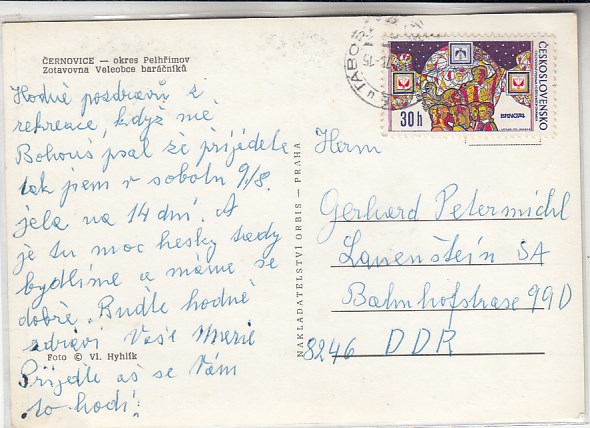 ČERNOVICE — okres Pelhřimov
Zotavovna Veleobce baráčníků
Hodně pozdravů z
rekreace, když mě
Bohouš psal že přijedete
tak jsem v sobotu 9/8.
jela na 14 dní. A
je tu moc hesky tady
bydlíme a máme se
dobře. Buďte hodně
zdraví Vaše Marie
Foto © Vl. Hyhlík
Přijeďte až se Vám
to hodí!
NAKLADATELSTVÍ ORBIS — PRAHA
TÁBOR
ČESKOSLOVENSKO
30 h
BRNO 74
Herrn
Gerhard Petermichl
Lauenštein SA
Bahnhofstrase 99D
8246 DDR